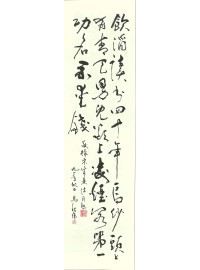 飲酒讀書四十年烏紗頭上
有青天男兒欲上凌煙閣第一
功名不愛錢